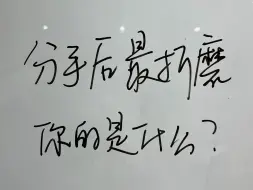 分手后最折磨
你的是什么？